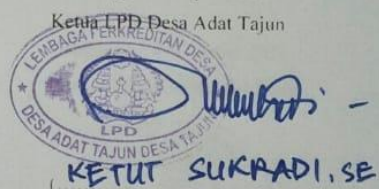 Ketua LPD Desa Adat Tajun
LEMBAGA PERKREDITAN DESA
LPD
DESA ADAT TAJUN DESA TAJUN
KETUT SUKRADI, SE